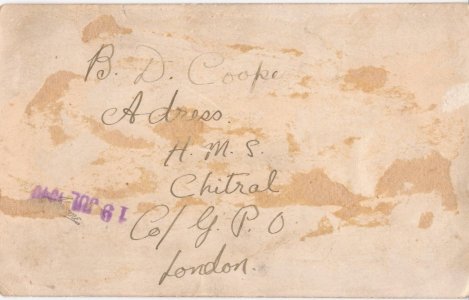 B. D. Coope
Adress.
H. M. S.
Chitral
Co/ G. P. O.
London.
19 JUL